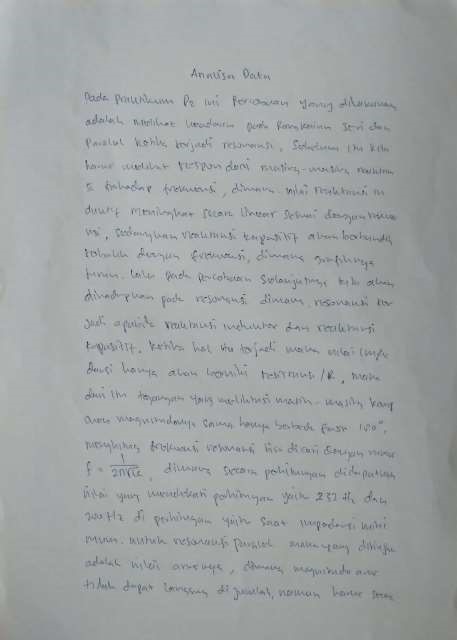 Analisa Data
Pada praktikum P2 ini percobaan yang dilakukan
adalah melihat keadaan pada Rangkaian Seri dan
Paralel ketika terjadi resonansi. Sebelum itu kita
harus melihat respon dari masing-masing reaktan
si terhadap frekuensi, dimana nilai reaktansi in
duktif meningkat secara linear sesuai dengan
si, sedangkan reaktansi kapasitif akan berbanding
terbalik dengan frekuensi, dimana grafiknya
turun. Lalu pada percobaan selanjutnya kita akan
dihadapkan pada resonansi dimana resonansi ter
jadi apabila reaktansi induktor dan reaktansi
kapasitif. Ketika hal itu terjadi maka nilai impe
dansi hanya akan bernilai resistansi/R, maka
dari itu tegangan yang melintasi masing-masing komp
akan magnitudonya sama hanya berbeda fasa 180°.
menghitung frekuensi resonansi bisa dicari dengan rumus
f = 1/2π√LC, dimana secara perhitungan didapatkan
nilai yang mendekati perhitungan yaitu 232 Hz dan
200 Hz di perhitungan yaitu saat impedansi mini
mum. untuk resonansi paralel maka yang ditinjau
adalah nilai arusnya, dimana magnitudo arus
tidak dapat langsung dijumlah, namun harus secara